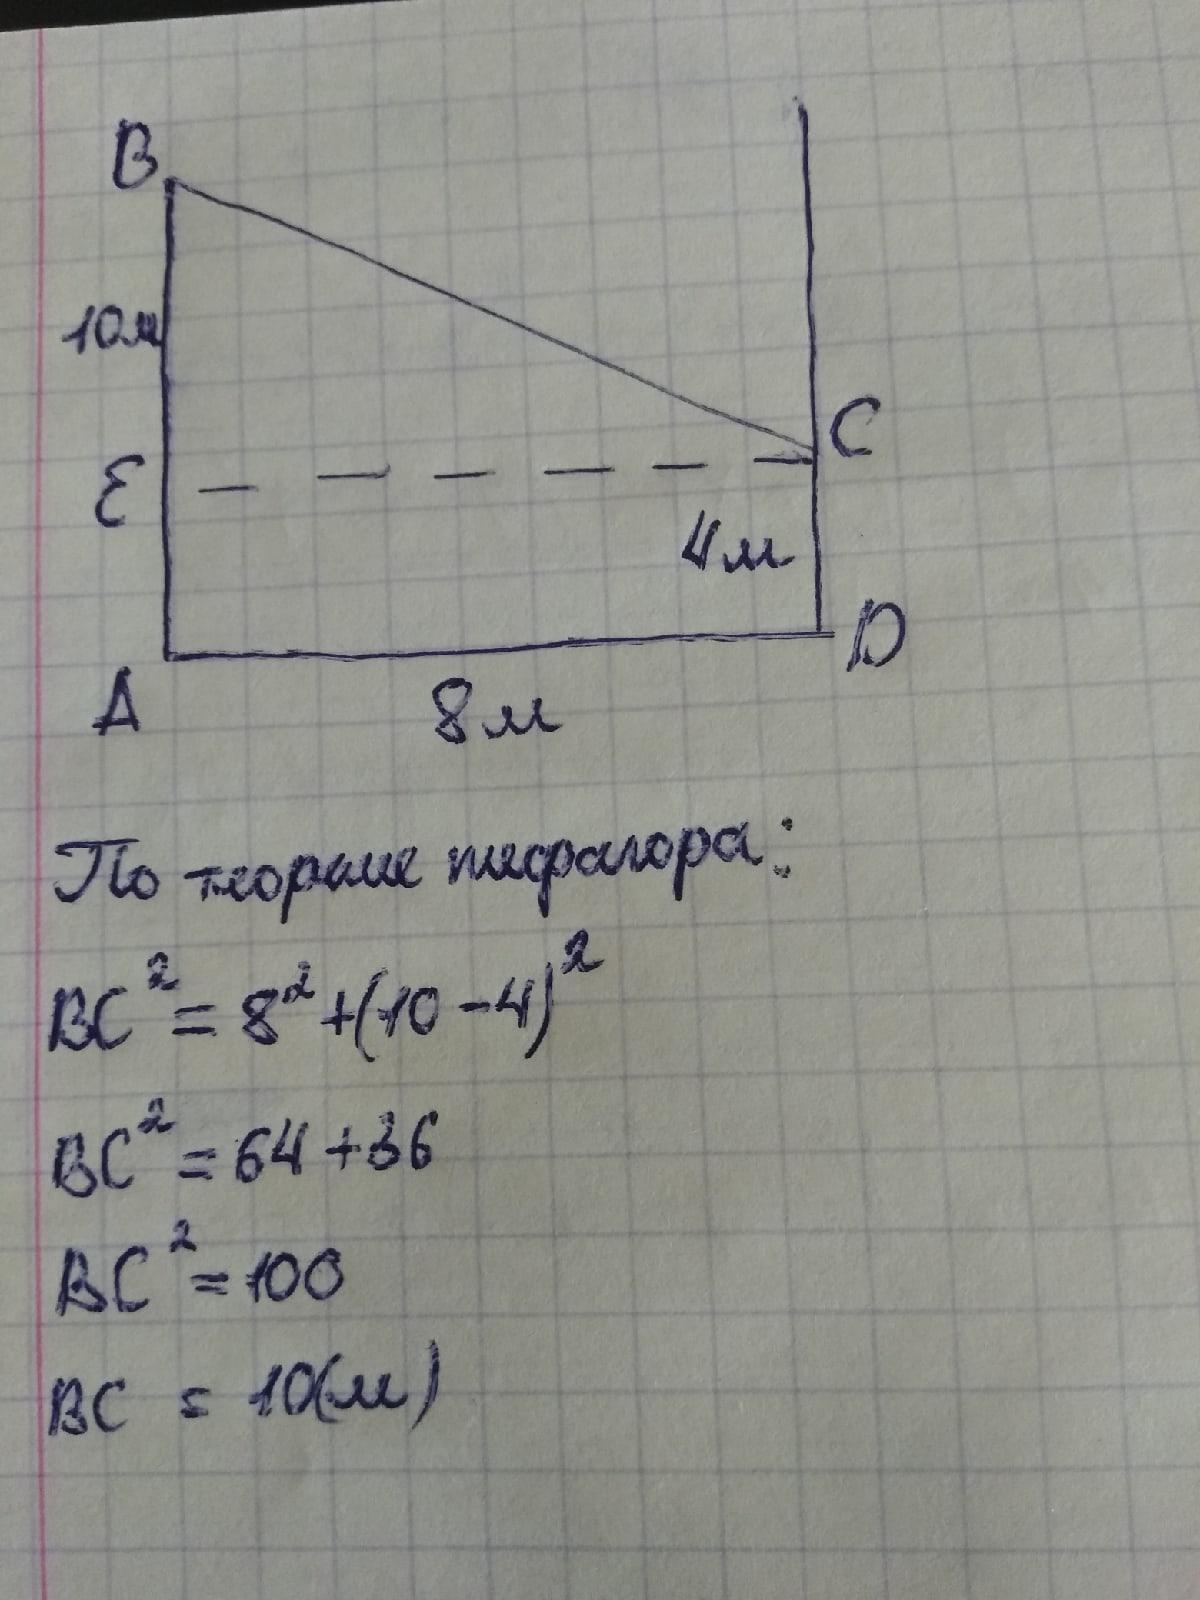 B
10м
C
E
4м
D
A
8м
По теореме пифагора:
BC² = 8² + (10 - 4)²
BC² = 64 + 36
BC² = 100
BC = 10(м)